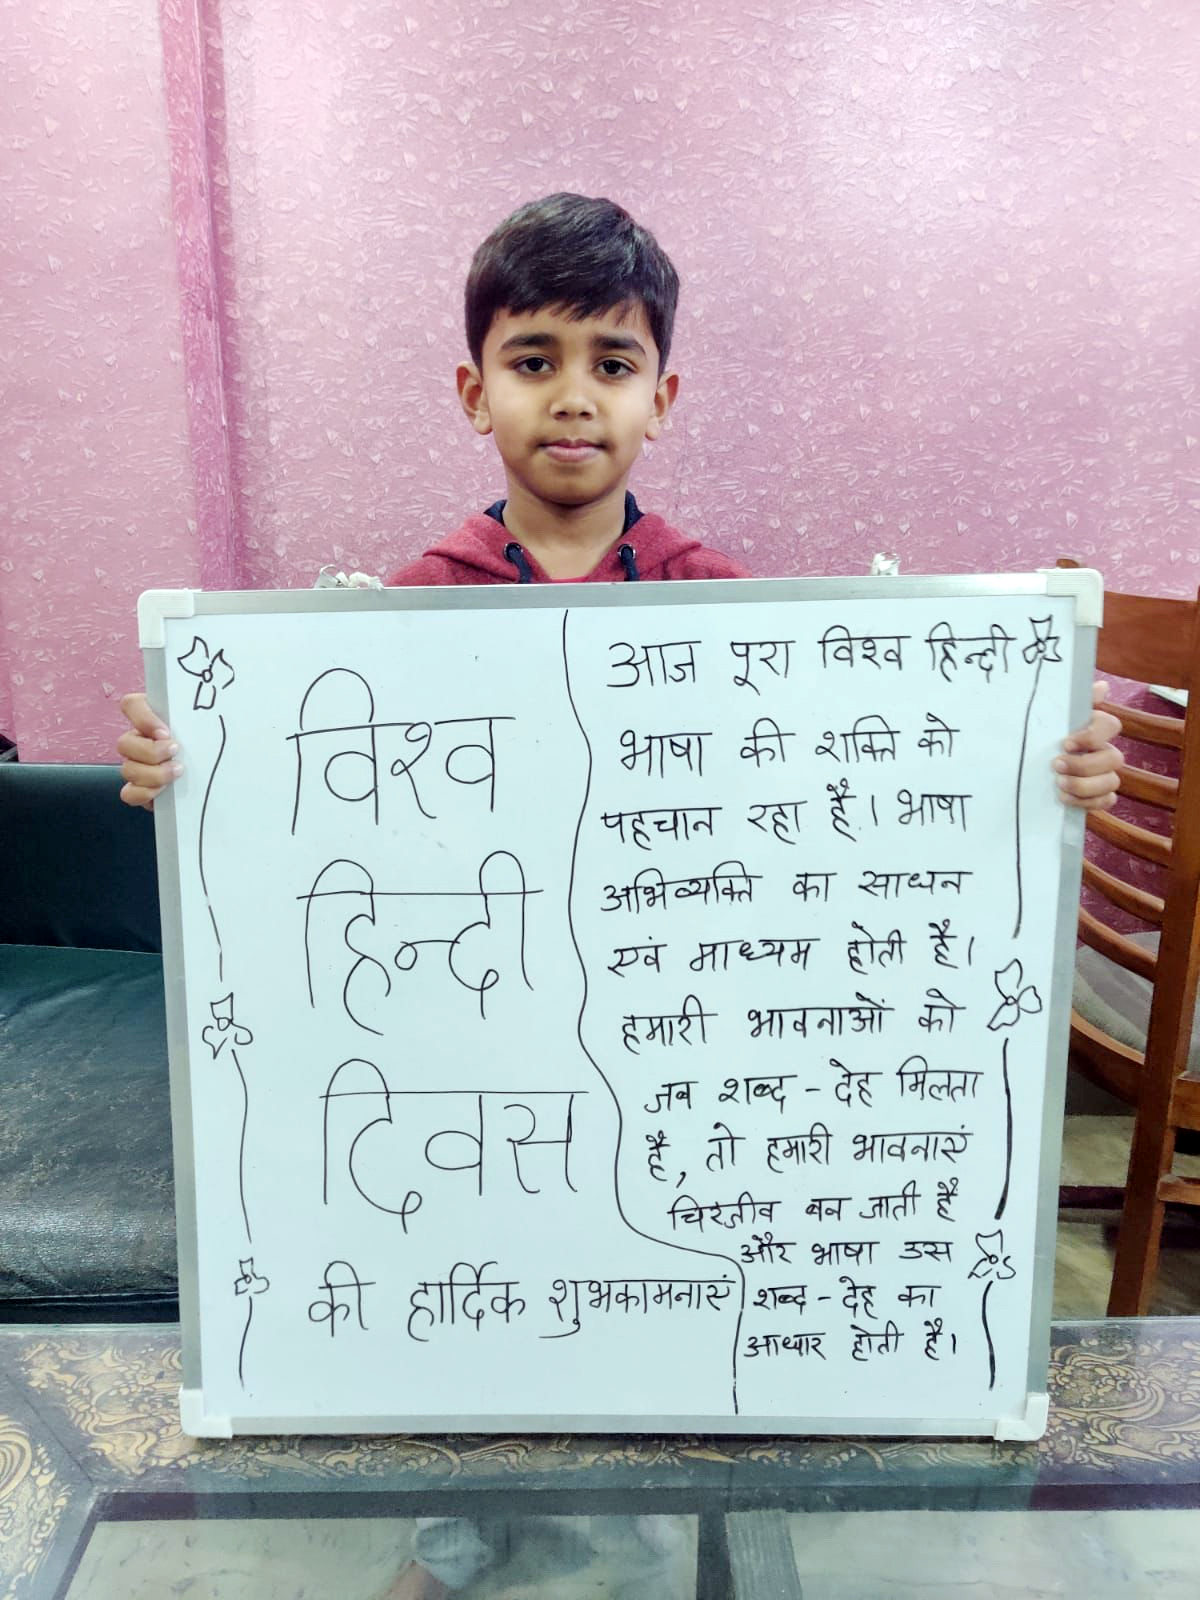 विश्व
हिन्दी
दिवस
की हार्दिक शुभकामनाएं
आज पूरा विश्व हिन्दी
भाषा की शक्ति को
पहचान रहा है। भाषा
अभिव्यक्ति का साधन
एवं माध्यम होती है।
हमारी भावनाओं को
जब शब्द - देह मिलता
है, तो हमारी भावनाएं
चिरंजीव बन जाती है
और भाषा उस
शब्द - देह का
आधार होती है।